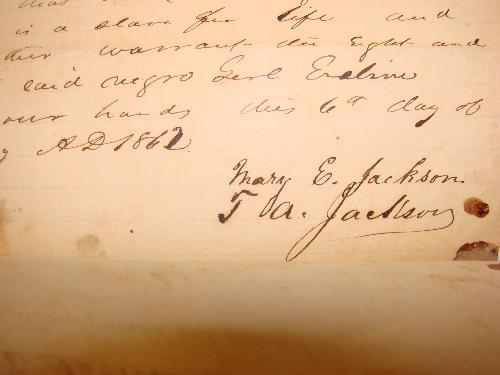 is a slave for Life and
warrant the right and
said negro Girl Emline
our hands this 6th day of
y AD 1862
Mary E. Jackson
T A. Jackson